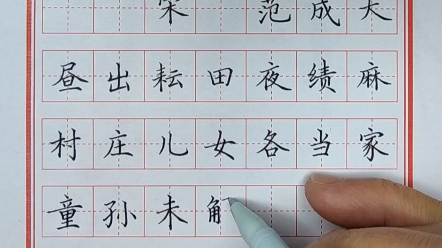 宋 范成大
昼出耘田夜绩麻
村庄儿女各当家
童孙未解